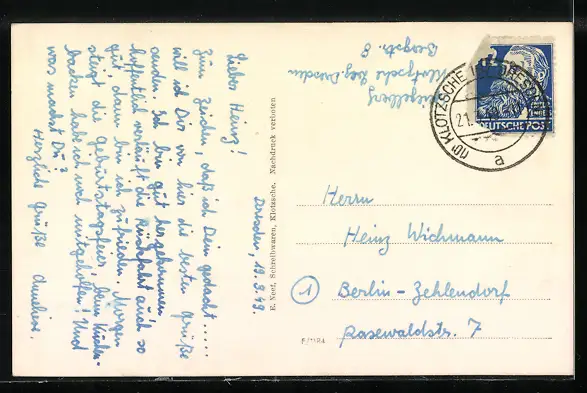 Lieber Heinz!
Zum Zeichen, daß ich Dein gedacht....
will ich Dir von hier die besten Grüße
senden. Ich bin gut hergekommen
hoffentlich verläuft die Rückfahrt auch so
gut, dann bin ich zufrieden. Morgen
steigt die Geburtstagsfeier, beim Kuchen-
backen hab ich noch mitgeholfen! Und
was machst Du?
Herzliche Grüße
Dresden, 19.3.49.
E. Neef, Schreibwaren, Klotzsche. Nachdruck verboten
Klotzsche bez. Dresden
Bergstr. 8
(10) KLOTZSCHE
21.
a
DEUTSCHE POST
Herrn
Heinz Wichmann
1 Berlin-Zehlendorf
Rasewaldstr. 7